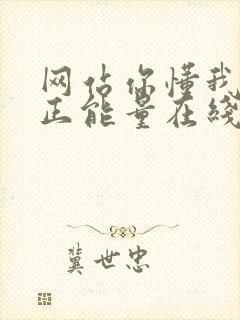 网站你懂我
正能量在线
冀世忠